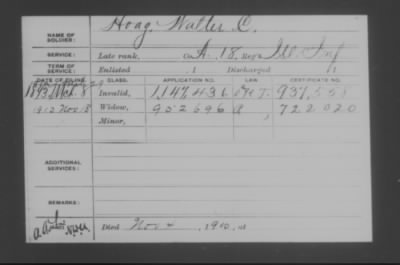 Hoag, Walter C.
NAME OF SOLDIER:
SERVICE: Late rank, Co. A, 18, Reg't Ill. Inf
TERM OF SERVICE: Enlisted , 1 Discharged , 1
DATE OF FILING. CLASS. APPLICATION NO. LAW. CERTIFICATE NO.
Invalid, 1,147,436
1912 Nov 18 Widow, 952696 722,020
Minor,
ADDITIONAL SERVICES:
REMARKS:
Died Nov 4, 1910, at